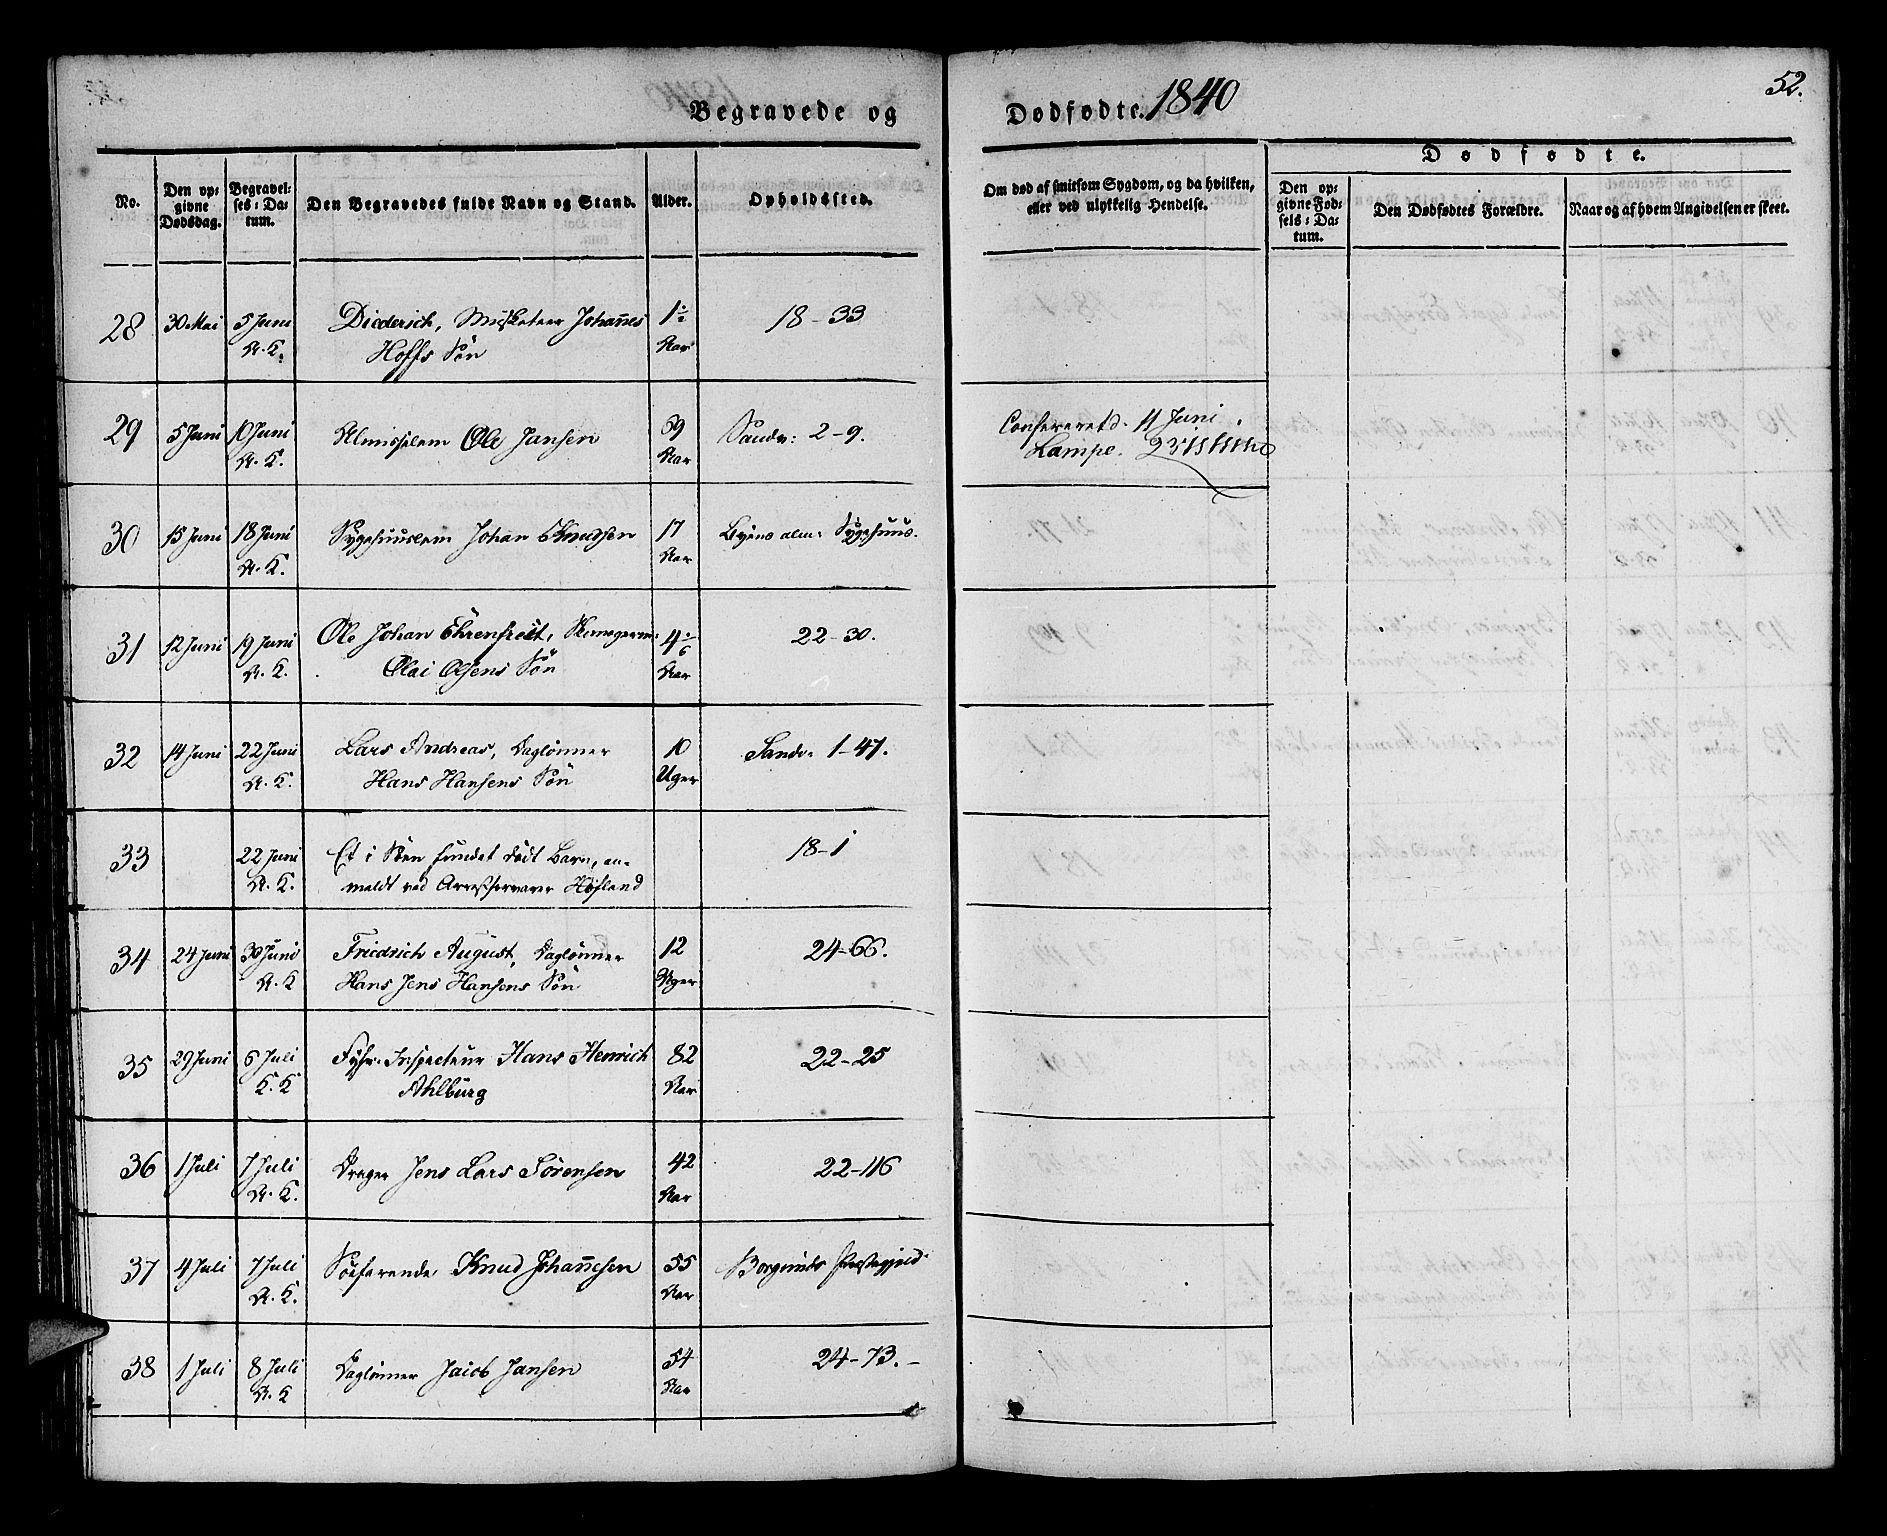 52.
Begravede og Dødfødte. 1840
No.
Den opgivne Dødsdag.
Begravelses-Datum.
Den Begravedes fulde Navn og Stand.
Alder.
Opholdssted.
Om død af smitsom Sygdom, og da hvilken,
eller ved ulykkelig Hendelse.
Dødfødte.
Den opgivne Fødsels-Datum.
Den Dødfødtes Forældre.
Naar og af hvem Angivelsen er skeet.
28 30 Mai 5 Juni Diederich, Musketeer Johannes 1½ 18-33
A. K. Hoffs Søn Aar
29 5 Juni 10 Juni Almisselem Ole Jansen 69 Sandv: 2-9. 11 Juni
A. K. Aar Lampe.
30 15 Juni 18 Juni Sygehuuslem Johan Knudsen 17 Byens alm: Sygehuus.
A. K. Aar
31 12 Juni 19 Juni Ole Johan Ehrenfrett, 4 22-30.
A. K. Olai Olsens Søn Aar
32 14 Juni 22 Juni Lars Andreas, Daglønner 10 Sandv: 1-47.
A. K. Hans Hansens Søn Uger
33 22 Juni Et i Søen fundet dødt Barn, an- 18-1
A. K. meldt ved Arrestforvarer Høyland
34 24 Juni 30 Juni Fridrich August, Daglønner 12 24-66.
A. K Hans Jens Hansens Søn Uger
35 29 Juni 6 Juli Fyhr-Inspecteur Hans Henrich 82 22-25
K. K Ahlburg Aar
36 1 Juli 7 Juli Drager Jens Lars Sørensen 42 22-116
A. K. Aar
37 4 Juli 7 Juli Søefarende Knud Johannesen 55 Borgunds Præstegjeld
A. K. Aar
38 1 Juli 8 Juli Daglønner Jacob Jansen 54 24-73.-
A. K Aar